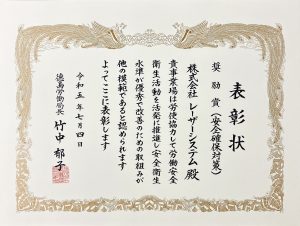 表彰状
奨励賞(安全確保対策)
株式会社 レーザーシステム 殿
貴事業場は労使協力して労働安全
衛生活動を活発に推進し安全衛生
水準が優秀で改善のための取組みが
他の模範であると認められます
よってここに表彰します
令和五年七月四日
徳島労働局長 竹中 郁子